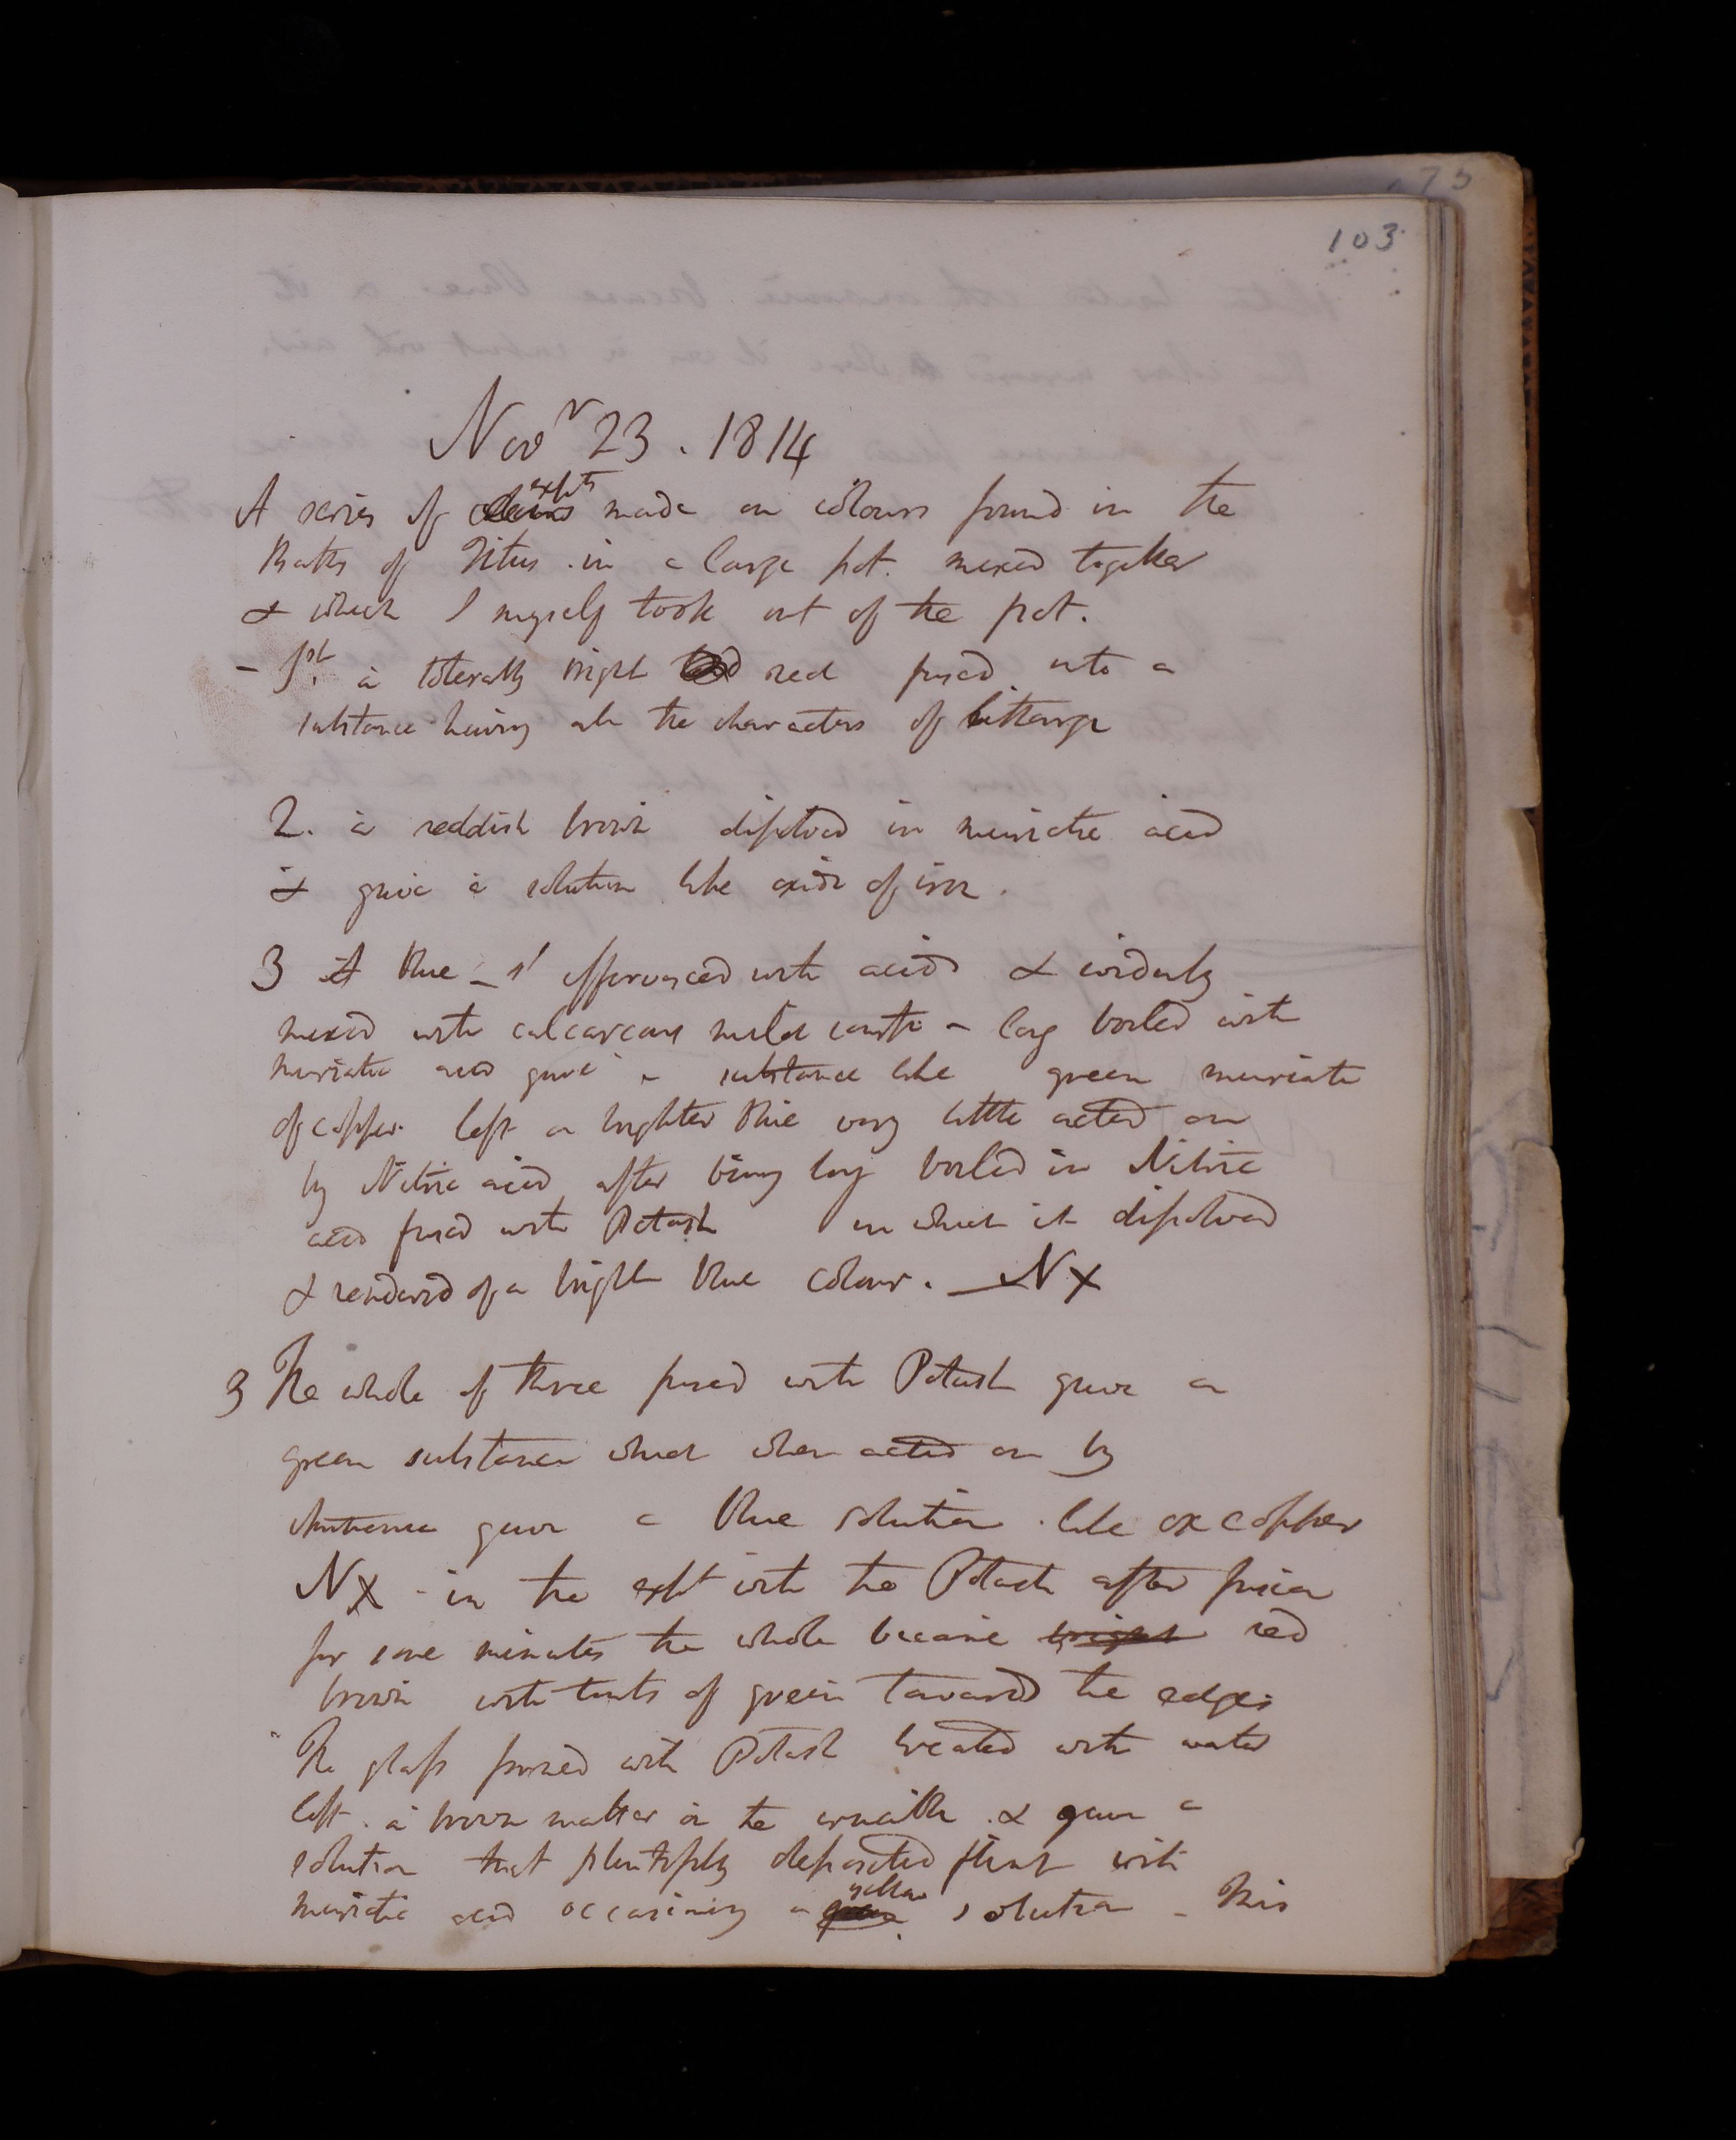 103
Novr 23. 1814
A series of expts made on colours found in the
Baths of Titus in a large pot. mixed together
& which I myself took out of the pot.
- 1st. a tolerably bright red fused into a
substance having all the characters of litharge
2. a reddish brown dissolved in muriatic acid
& gave a solution like oxide of iron.
3 A blue _ 1st effervesced with acids & evidently
mixed with calcareous earth - long boiled with
muriatic acid gave a substance like green muriate
of copper. left a brighter blue very little acted on
by Nitric acid after being long boiled in Nitric
acid fused with Potash in which it dissolved
& rendered of a bright blue colour. _ NX
3 The whole of three fused with Potash gave a
green substance which when acted on by
gave a blue solution. like ox copper
NX - in the expt with the Potash after fusion
for some minutes the whole became bright red
brown with tints of green toward the edges
The glass formed with Potash treated with water
left. a brown matter in the crucible. & gave a
solution that plentifully deposited flint with
muriatic acid occasioning a yellow solution - This